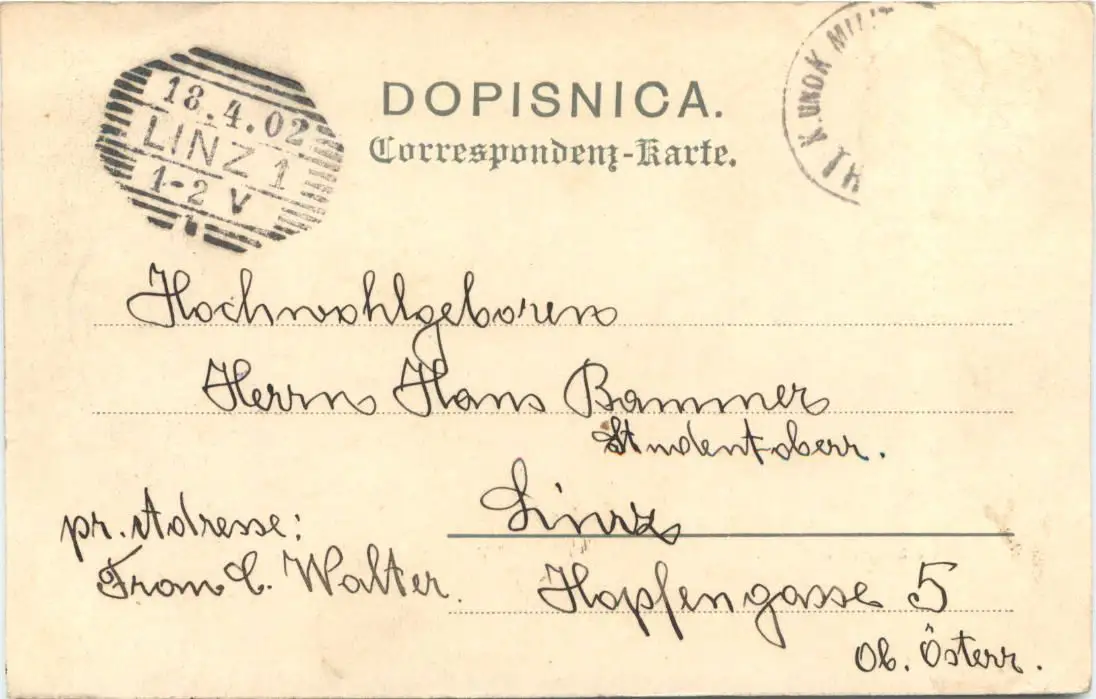 DOPISNICA.
Correspondenz-Karte.
18.4.02
LINZ 1
1-2 V
K. UND K. MILIT
TR
Hochwohlgeboren
Herrn Hans Bammer
Linz
pr. Adresse:
Frau C. Walter.
Hopfengasse 5
Ob. Österr.